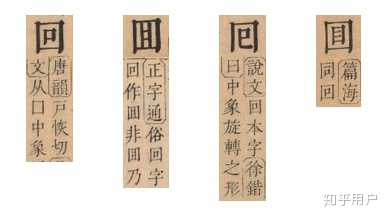 回
唐韻戶恢切
文从口中象
囬
正字通俗回字
回作囬非囬乃
囘
說文回本字徐鍇
曰中象旋轉之形
𡇌
篇海
同回
知乎用户